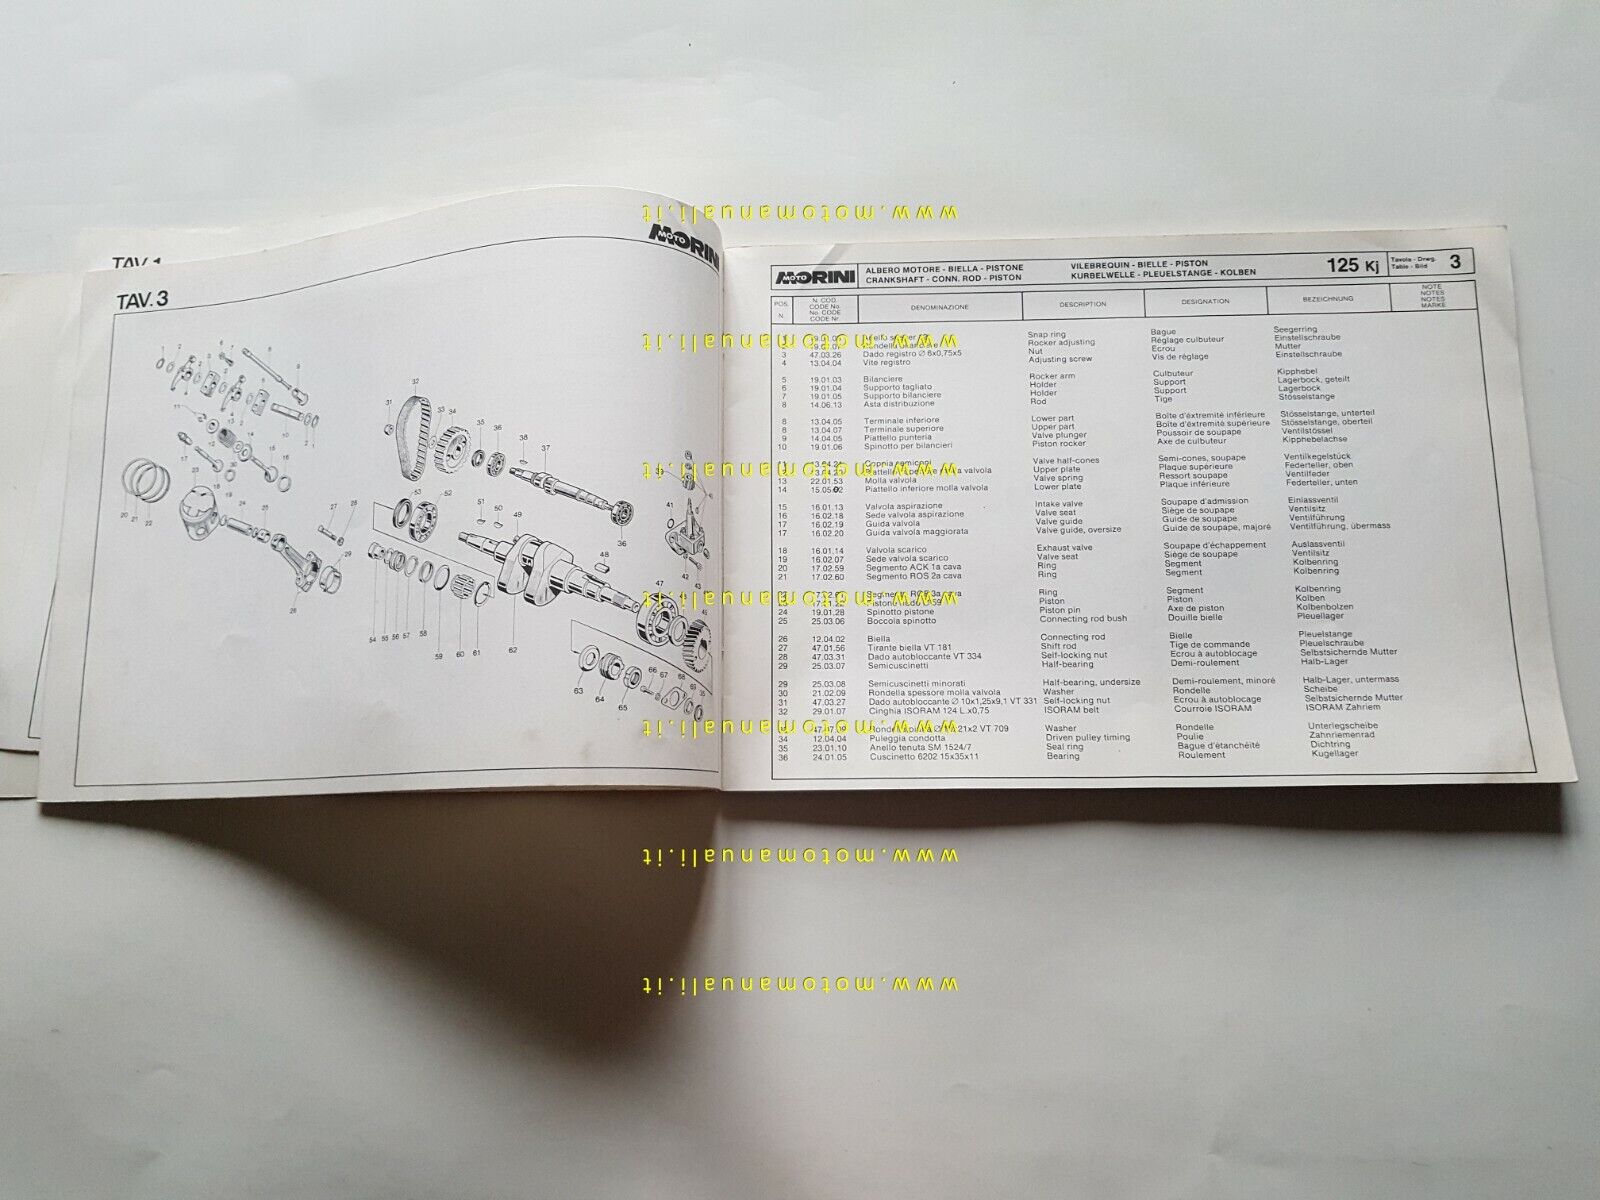 TAV. 1
TAV. 3
MOTO MORINI
MOTO MORINI
ALBERO MOTORE - BIELLA - PISTONE
CRANKSHAFT - CONN. ROD - PISTON
VILEBREQUIN - BIELLE - PISTON
KURBELWELLE - PLEUELSTANGE - KOLBEN
125 Kj
Tavola - Drwg.
Table - Bild
3
POS. N.
N. COD.
CODE No.
No. CODE
CODE Nr.
DENOMINAZIONE
DESCRIPTION
DESIGNATION
BEZEICHNUNG
NOTE
NOTES
NOTES
MARKE
Snap ring Bague Seegerring
Rocker adjusting Réglage culbuteur Einstellschraube
3 47.03.26 Dado registro Ø 6x0,75x5 Nut Ecrou Mutter
4 13.04.04 Vite registro Adjusting screw Vis de réglage Einstellschraube
5 19.01.03 Bilanciere Rocker arm Culbuteur Kipphebel
6 19.01.04 Supporto tagliato Holder Support Lagerbock, geteilt
7 19.01.05 Supporto bilanciere Holder Support Lagerbock
8 14.06.13 Asta distribuzione Rod Tige Stösselstange
8 13.04.05 Terminale inferiore Lower part Boîte d'éxtremité inférieure Stösselstange, unterteil
8 13.04.07 Terminale superiore Upper part Boîte d'éxtremité supérieure Stösselstange, oberteil
9 14.04.05 Piattello punteria Valve plunger Poussoir de soupape Ventilstössel
10 19.01.06 Spinotto per bilancieri Piston rocker Axe de culbuteur Kipphebelachse
Valve half-cones Semi-cones, soupape Ventilkegelstück
molla valvola Upper plate Plaque supérieure Federteller, oben
13 22.01.53 Molla valvola Valve spring Ressort soupape Ventilfeder
14 15.05.02 Piattello inferiore molla valvola Lower plate Plaque inférieure Federteller, unten
15 16.01.13 Valvola aspirazione Intake valve Soupape d'admission Einlassventil
16 16.02.18 Sede valvola aspirazione Valve seat Siège de soupape Ventilsitz
17 16.02.19 Guida valvola Valve guide Guide de soupape Ventilführung
17 16.02.20 Guida valvola maggiorata Valve guide, oversize Guide de soupape, majoré Ventilführung, übermass
18 16.01.14 Valvola scarico Exhaust valve Soupape d'échappement Auslassventil
19 16.02.07 Sede valvola scarico Valve seat Siège de soupape Ventilsitz
20 17.02.59 Segmento ACK 1a cava Ring Segment Kolbenring
21 17.02.60 Segmento ROS 2a cava Ring Segment Kolbenring
3a cava Ring Segment Kolbenring
Piston Piston Kolben
24 19.01.28 Spinotto pistone Piston pin Axe de piston Kolbenbolzen
25 25.03.06 Boccola spinotto Connecting rod bush Douille bielle Pleuellager
26 12.04.02 Biella Connecting rod Bielle Pleuelstange
27 47.01.56 Tirante biella VT 181 Shift rod Tige de commande Pleuelschraube
28 47.03.31 Dado autobloccante VT 334 Self-locking nut Ecrou à autoblocage Selbstsichernde Mutter
29 25.03.07 Semicuscinetti Half-bearing Demi-roulement Halb-Lager
29 25.03.08 Semicuscinetti minorati Half-bearing, undersize Demi-roulement, minoré Halb-Lager, untermass
30 21.02.09 Rondella spessore molla valvola Washer Rondelle Scheibe
31 47.03.27 Dado autobloccante Ø 10x1,25x9,1 VT 331 Self-locking nut Ecrou à autoblocage Selbstsichernde Mutter
32 29.01.07 Cinghia ISORAM 124 L.x0,75 ISORAM belt Courroie ISORAM ISORAM Zahriem
21x2 VT 709 Washer Rondelle Unterlegscheibe
34 12.04.04 Puleggia condotta Driven pulley timing Poulie Zahnriemenrad
35 23.01.10 Anello tenuta SM 1524/7 Seal ring Bague d'étanchéité Dichtring
36 24.01.05 Cuscinetto 6202 15x35x11 Bearing Roulement Kugellager
www.motomanuali.it
www.motomanuali.it
www.motomanuali.it
www.motomanuali.it
www.motomanuali.it
www.motomanuali.it
www.motomanuali.it